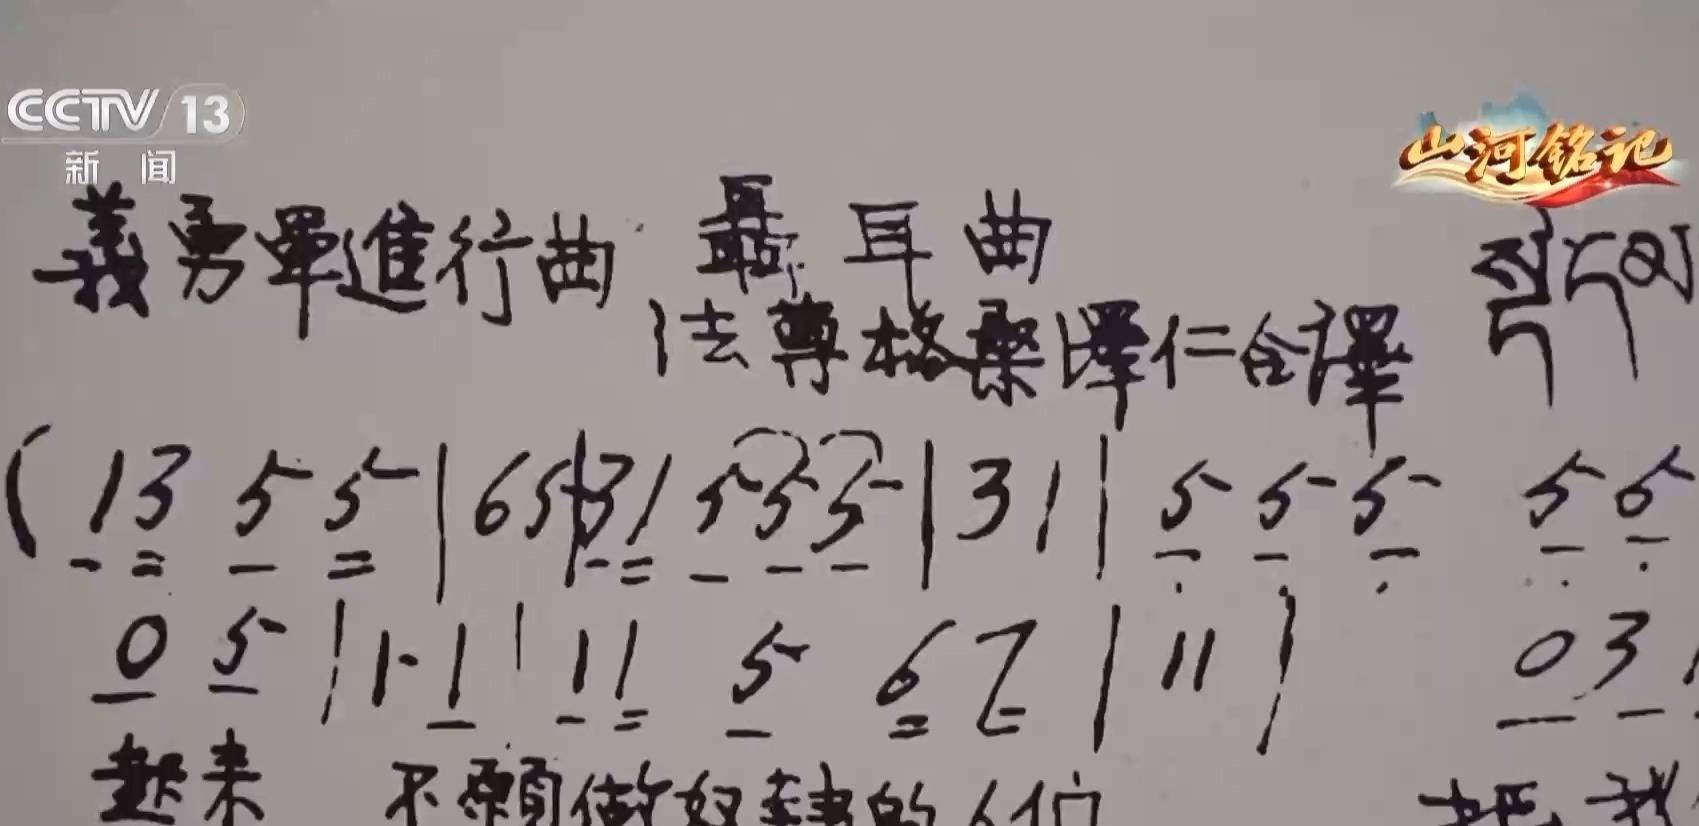 CCTV 13
新闻
山河铭记
義勇軍進行曲 聶耳曲
法尊格桑澤仁合譯
( 13 5 5 | 65 | 31 5 5 5 | 31 | 5 5 5 5 5
0 5 | 1· 1 | 11 5 6 7 | 11 | 0 3
起来 不願做奴隸的人们 把我